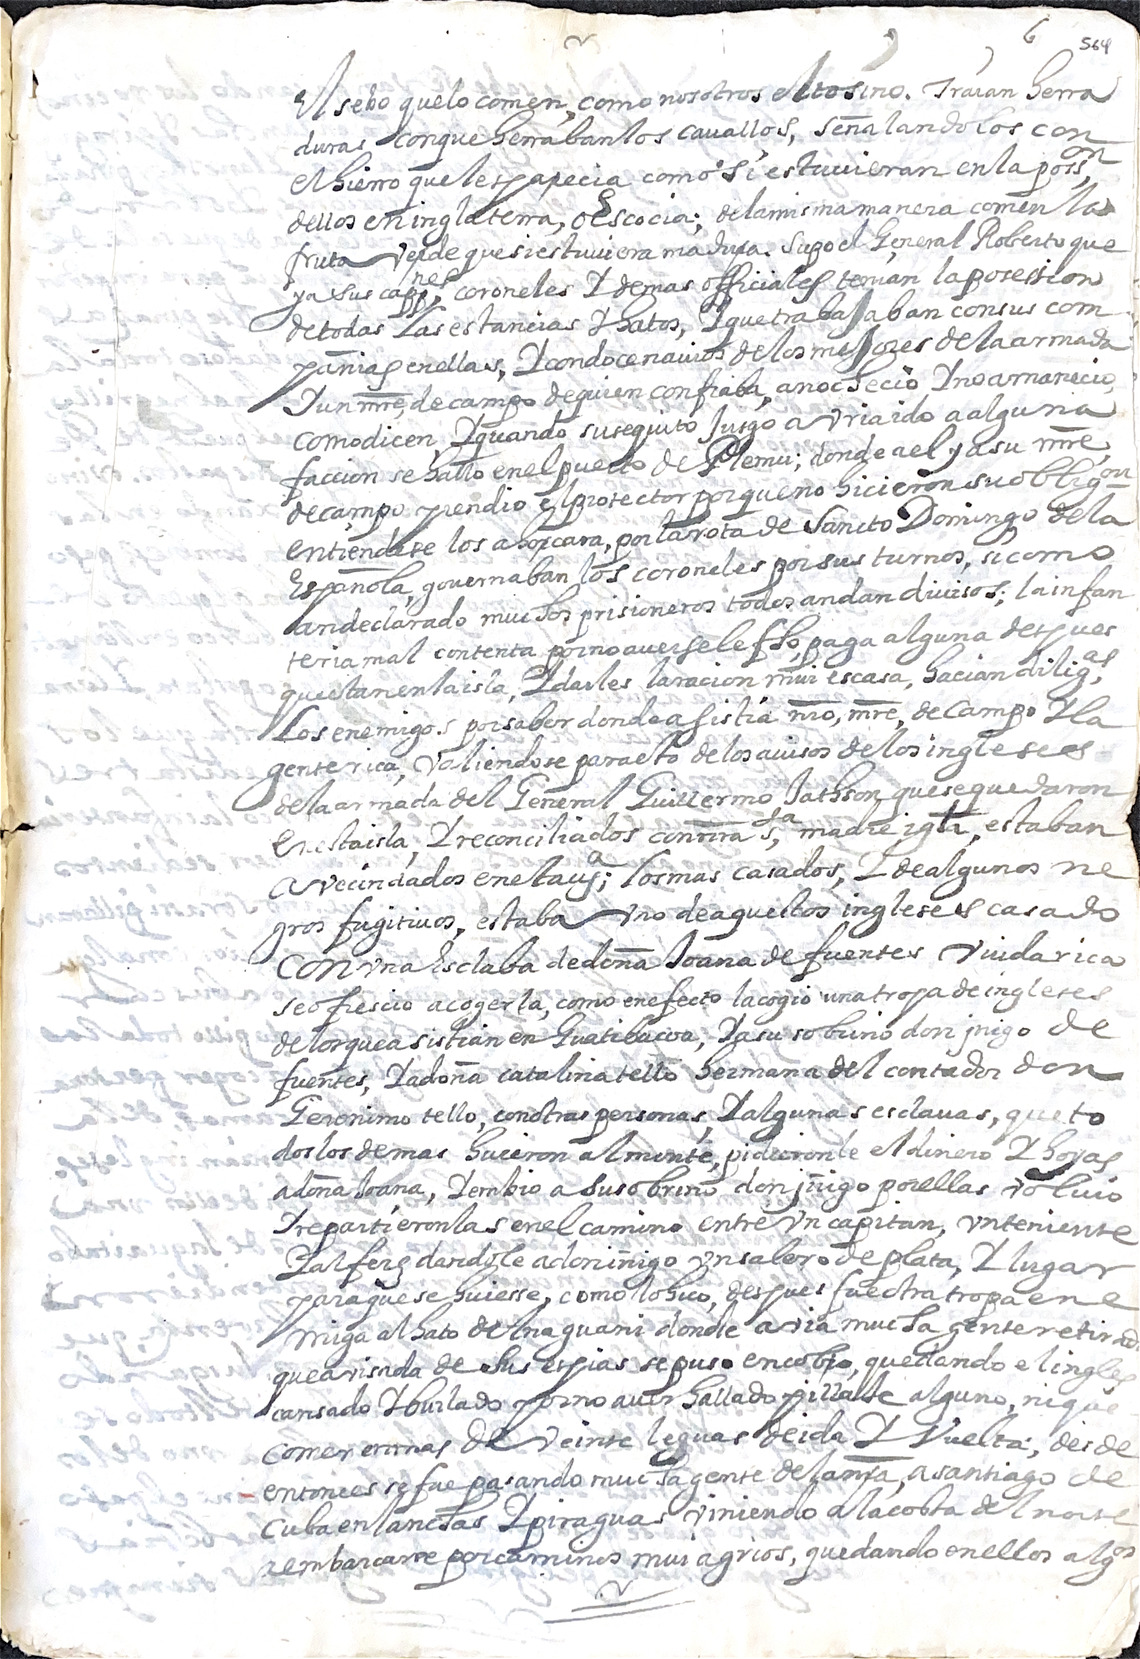 6 564
El sebo que lo comen, como nosotros el tosino. Traian herra
duras con que herraban los cauallos, señalandolos con
el hierro que les parecia como si estuuieran en la poss.on
dellos en inglaterra, o Escocia; de la misma manera comen la
fruta verde que si estuuiera madura. Supo el General Roberto que
ya sus capp.nes, coroneles Y demas officiales tenian la posesion
de todas Las estancias Y hatos, Y que trabajaban con sus com
pañias en ellas, Y con doce nauios de los mejores de la armada
Y un mre, de campo de quien confiaba, anochecio Y no amanecio,
como dicen, Y quando su sequito Jusgo avria ido a alguna
faccion se hallo en el puerto de Plemu; donde a el y a su mre,
de campo prendio el protector porque no hicieron su obligon
entiendase los ahorcara, por la rota de Sancto Domingo de la
Española, governaban los coroneles por sus turnos, si como
an declarado muchos prisioneros todos andan diuisos; la infan
teria mal contenta por no auersele fho, paga alguna despues
que estan en la isla, Y darles la racion mui escasa, hacian dilig.as
Los enemigos por saber donde asistia nro, mre, de Campo Y la
gente rica, valiendose para esto de los auisos de los ingleses
de la armada del General Guillermo Jachson, que se quedaron
en esta isla, Y reconciliados con nra s.ta, madre igla, estaban
avecindados en esta uª; los mas casados, Y de algunos ne
gros fugitiuos, estaba vno de aquestos ingleses casado
con vna Esclaba de doña Joana de fuentes viuda rica
se ofrescio a cogerla, como en efecto la cogio una tropa de ingleses
de los que asistian en Guatibacoa, Y a su sobrino don jnigo de
fuentes, Y a doña catalina tello hermana del contador don
Geronimo tello, con otras personas, Y algunas esclauas, que to
dos los demas huieron al monte, pidieronle el dinero Y hoyas
a doña Joana, Y embio a su sobrino don jñigo por ellas voluio
Y repartieronlas en el camino entre vn capitan, vn teniente
Y alferes dandole a don iñigo vn salero de plata, Y lugar
para que se huiesse, como lo hiço, despues fue otra tropa ene
miga al hato de maguani donde avia mucha gente retirada
que avisada de sus espias se puso en cobro, quedando el ingles
cansado Y burlado por no auer hallado pillaxe alguno, ni que
comer en mas de veinte leguas de ida Y Vuelta; desde
entonces se fue pasando mucha gente de la nra, a santiago de
Cuba en lanchas Y piraguas viniendo a la costa del norte
a embarcarse por caminos mui agrios, quedando en ellos algos